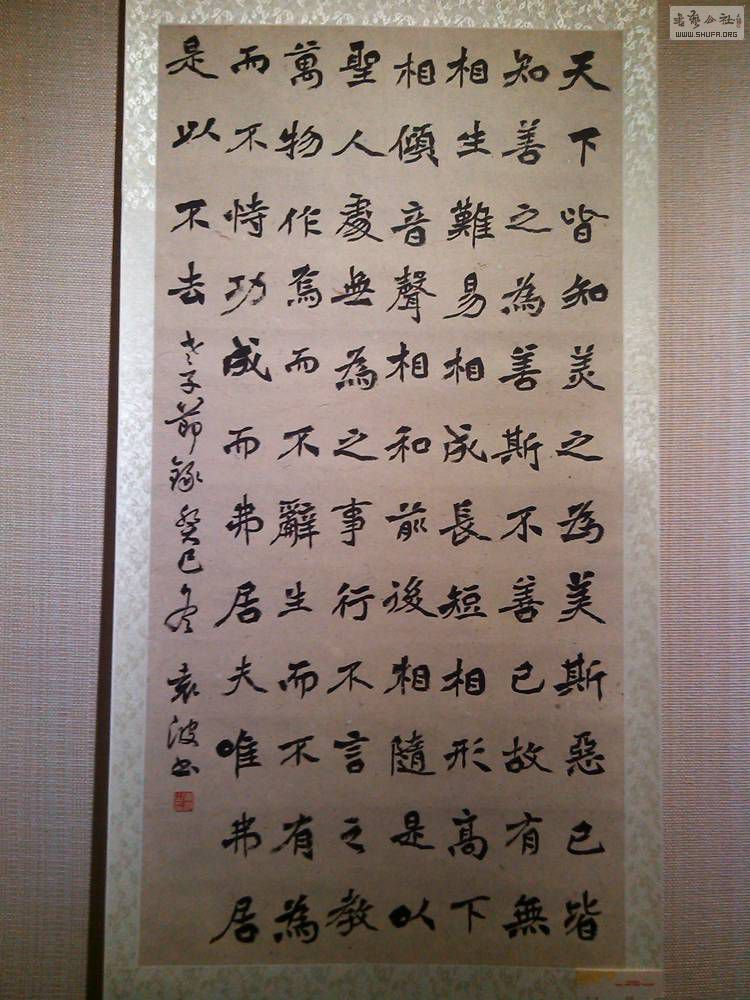 天下皆知美之為美斯惡已皆
知善之為善斯不善已故有無
相生難易相成長短相形高下
相傾音聲相和前後相隨是以
聖人處無為之事行不言之教
萬物作焉而不辭生而不有為
而不恃功成而弗居夫唯弗居
是以不去 老子節錄癸巳冬 袁波书
WWW.SHUFA.ORG